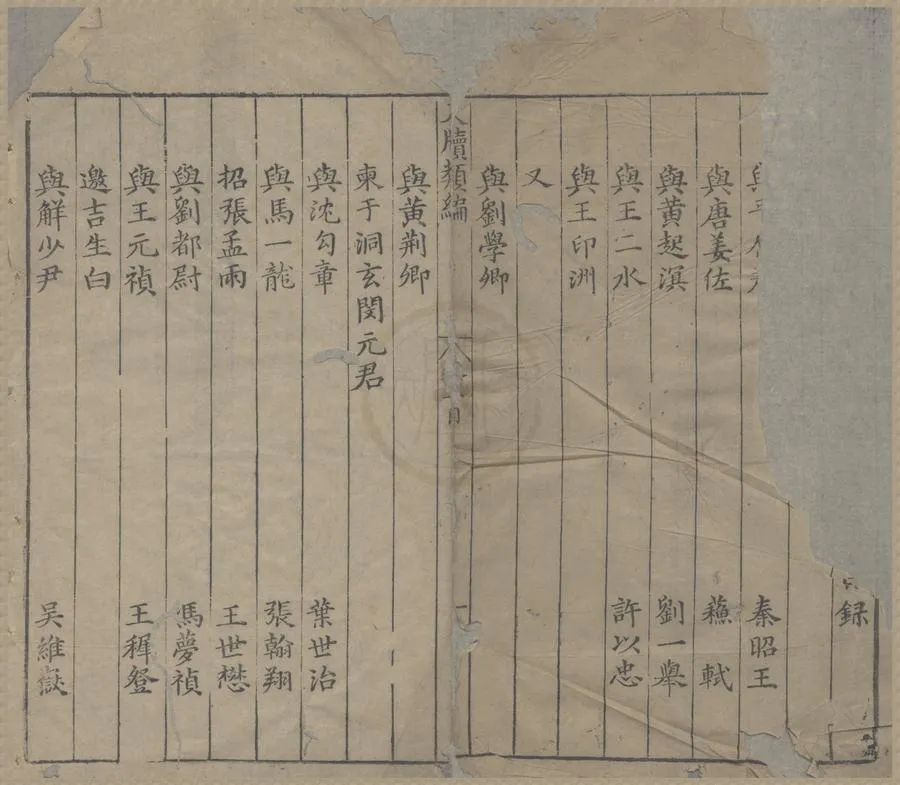 錄
與平 秦昭王
與唐姜佐 蘓軾
與黃起溟 劉一舉
與王二水 許以忠
與王印洲
又
與劉學卿
牘類編 六 目 一
與黃荊卿
柬于洞玄閔元君
與沈勾章 葉世治
與馬一龍 張翰翔
招張孟雨 王世懋
與劉都尉 馮夢禎
與王元禎 王穉登
邀吉生白
與解少尹 吳維嶽